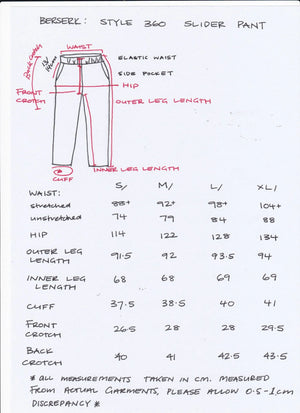 BERSERK: STYLE 360 SLIDER PANT
WAIST
ELASTIC WAIST
SIDE POCKET
HIP
FRONT CROTCH
OUTER LEG LENGTH
INNER LEG LENGTH
CUFF
S/ M/ L/ XL/
WAIST:
stretched 88+ 92+ 98+ 104+
unstretched 74 79 84 88
HIP 114 122 128 134
OUTER LEG LENGTH 91.5 92 93.5 94
INNER LEG LENGTH 68 68 69 69
CUFF 37.5 38.5 40 41
FRONT CROTCH 26.5 28 28 29.5
BACK CROTCH 40 41 42.5 43.5
* all MEASUREMENTS TAKEN IN CM. MEASURED
FROM ACTUAL GARMENTS, PLEASE ALLOW 0.5-1cm
DISCREPANCY *